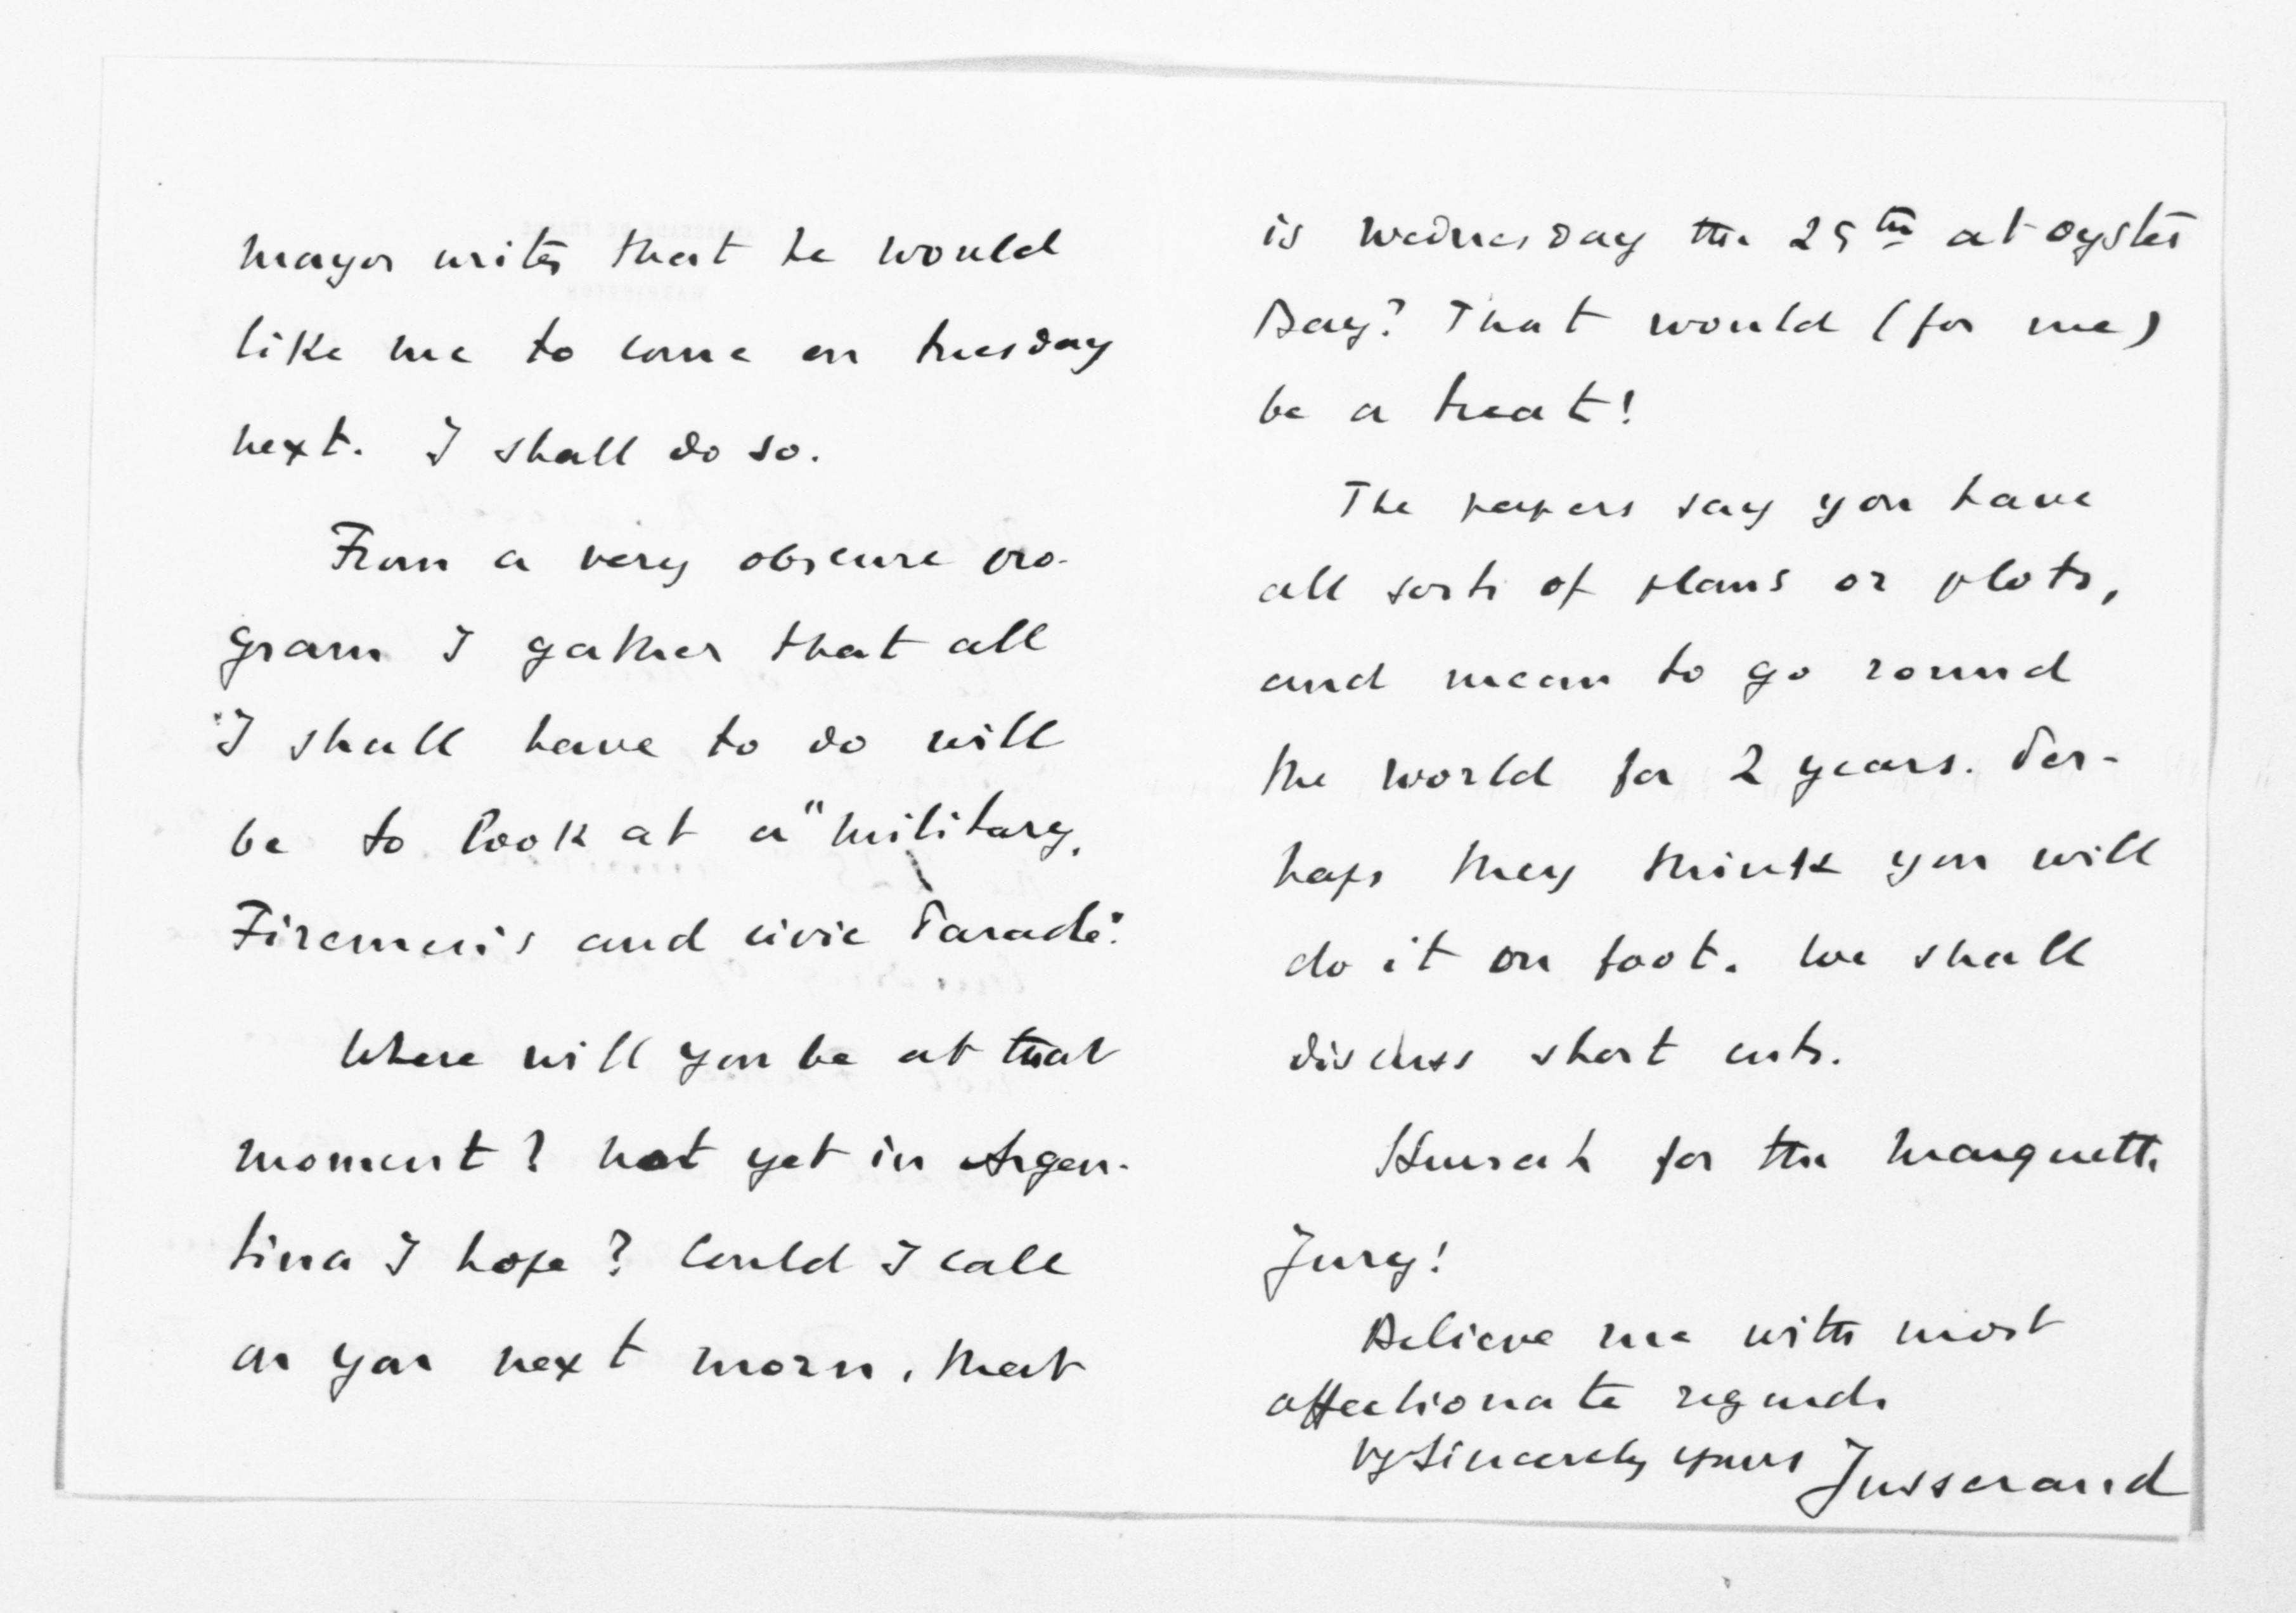 mayor writes that he would
like me to come on tuesday
next. I shall do so.
From a very obscure pro-
gram I gather that all
I shall have to do will
be to look at a "military,
Firemen's and civic Parade".
Where will you be at that
moment? not yet in Argen-
tina I hope? Could I call
on you next morn, that
is wednesday the 25th at oyster
Bay? That would (for me)
be a treat!
The papers say you have
all sorts of plans or plots,
and mean to go round
the world for 2 years. Per-
haps they think you will
do it on foot. We shall
discuss short cuts.
Hurrah for the Marquette
Jury!
Believe me with most
affectionate regards
vy sincerely yours Jusserand